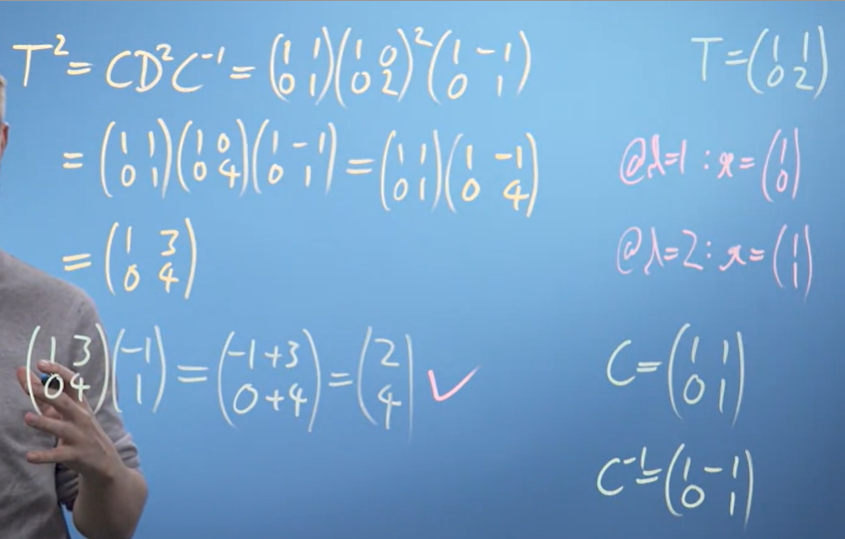 T² = CD²C⁻¹ = (1 1; 0 1)(1 0; 0 2)²(1 -1; 0 1)
= (1 1; 0 1)(1 0; 0 4)(1 -1; 0 1) = (1 1; 0 1)(1 -1; 0 4)
= (1 3; 0 4)
(1 3; 0 4)(-1; 1) = (-1+3; 0+4) = (2; 4) ✓
T = (1 1; 0 2)
@λ=1 : x = (1; 0)
@λ=2 : x = (1; 1)
C = (1 1; 0 1)
C⁻¹ = (1 -1; 0 1)